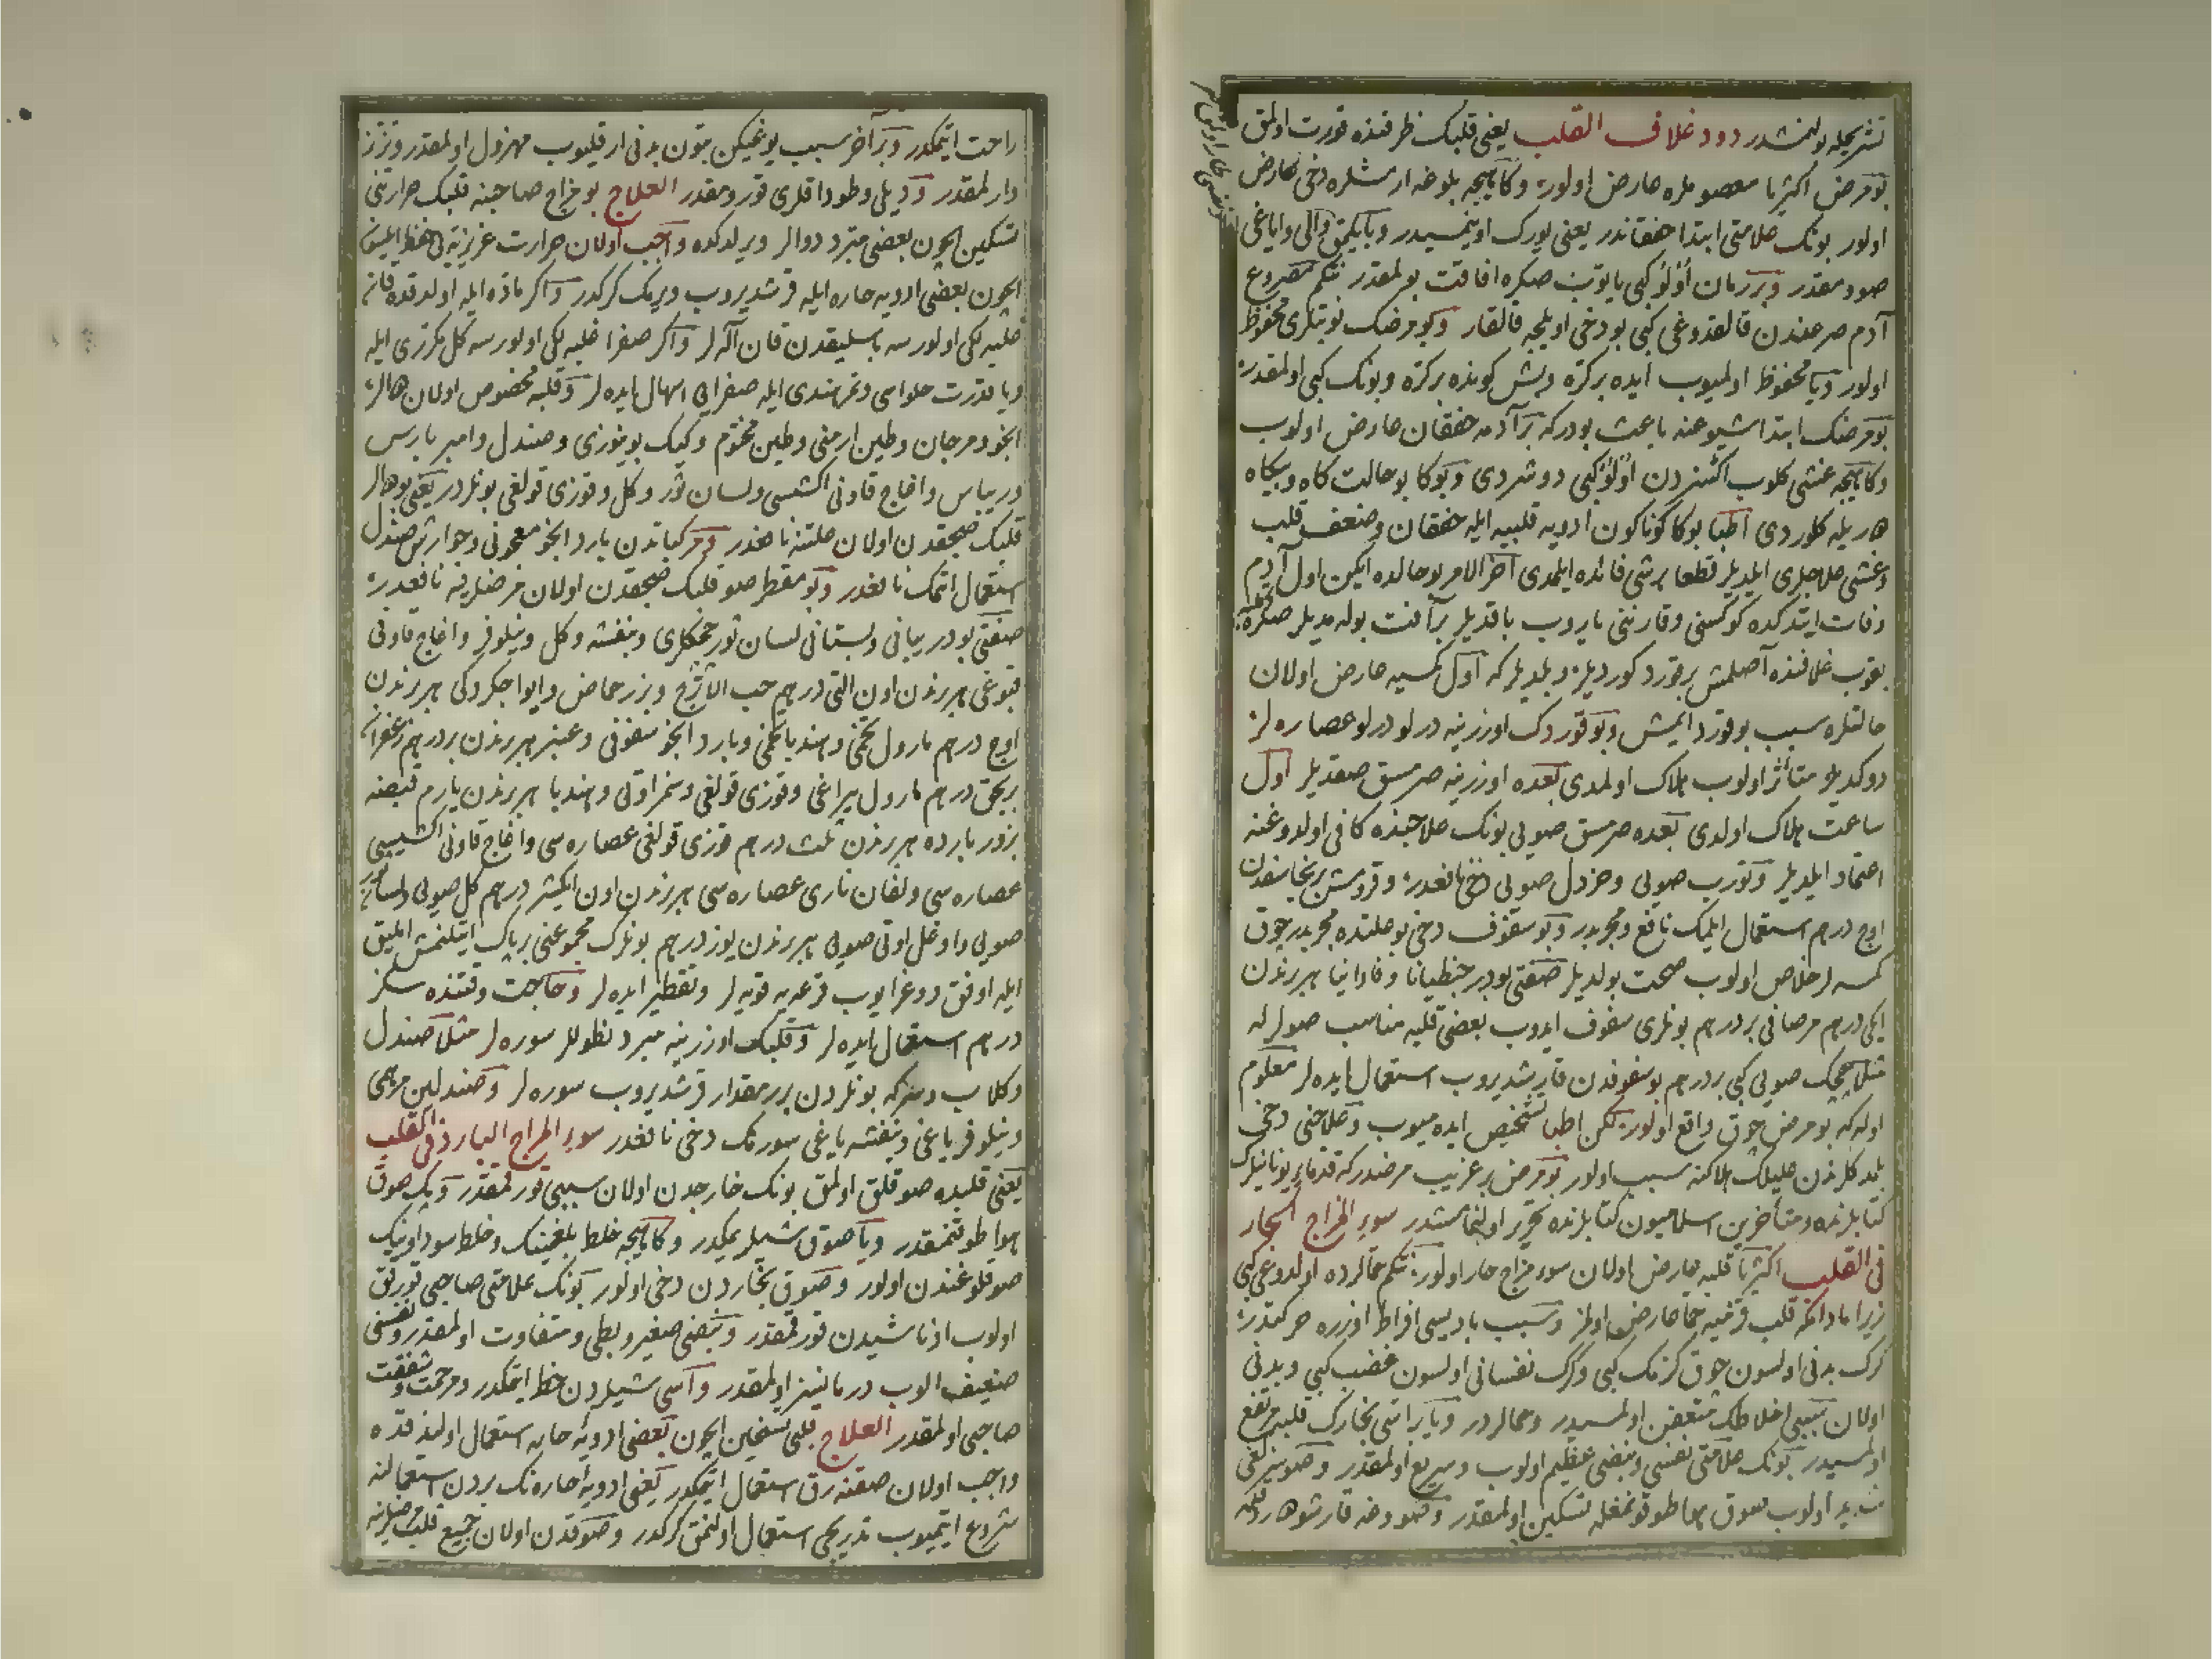 تشریحله بولنمشدر دود غلاف القلب یعنی قلبك ظرفنده قورت اولمق
بو مرض اکثریا معصوملره عارض اولور وکاهیجه بلوغه ارمشلره دخی عارض
اولور بونك علامتی ابتدا خفقاندر یعنی یورك اوینمسیدر وبایلمق والی وایاغی
صوومقدر وبر زمان اولو کبی یاتوب صکره افاقت بولمقدر نتکم مصروع
آدم صرعندن قالقدوغی کبی بو دخی اویلجه قالقار وبو مرضك نوبتلری محفوظ
اولور ویا محفوظ اولمیوب ایده بر کره وبش کونده بر کره وبونك کبی اولمقدر
بو مرضك ابتدا شیوعنه باعث بودر که بر آدمه خفقان عارض اولوب
وکاهیجه غشی کلوب اکسزدن اولو کبی دوشردی وبوکا بو حالت کاه وبیکاه
هر یله کلوردی اطبا بوکا کوناکون ادویه قلبیه ایله خفقان وضعف قلب
وغشی علاجلری ایلدیلر قطعا بر شی فائده ایلمدی آخر الامر بو حالده ایکن اول آدم
وفات ایتدکده کوکسنی وقارننی یاروب باقدیلر بر آفت بولمدیلر صکره قلبنی
یقوب غلافنده آصلمش بر قورد کوردیلر وبلدیلر که اول کمسیه عارض اولان
حالتلره سبب بو قورد ایمش وبو قوردك اوزرینه درلو درلو عصاره لر
دوکدیلر متأثر اولوب هلاك اولمدی بعده اوزرینه صرمسق صقدیلر اول
ساعت هلاك اولدی بعده صرمسق صویی بونك علاجنده کافی اولدوغنه
اعتماد ایلدیلر وتورب صویی وخردل صویی دخی نافعدر
اوج درهم استعمال ایلمك نافع ومجربدر وبو سفوف دخی بو علتده مجربدر چوق
کمسه لر خلاص اولوب صحت بولدیلر صفتی بودر جنطیانا وفاوانیا هر برندن
ایکی درهم مرصافی بر درهم بونلری سفوف ایدوب بعضی قلبه مناسب صولرله
مثلا چیچك صویی کبی بر درهم بو سفوفدن قارشدیروب استعمال ایده لر معلوم
اوله که بو مرض چوق واقع اولور لکن اطبا تشخیص ایده میوب وعلاجنی دخی
بلمدکلرندن علیلك هلاکنه سبب اولور بو مرض بر غریب مرضدر که قدمای یونانیلرك
کتابلرنده ومتأخرین اسلامیون کتابلرنده تحریر اولنمامشدر سوء المزاج الحار
فی القلب اکثریا قلبه عارض اولان سوء مزاج حار اولور نتکم حمالرده اولدوغی کبی
زیرا مادامکه قلب قزمیه حما عارض اولمز وسبب بادیسی افراط اوزره حرکتدر
کرك بدنی اولسون چوق کزمك کبی وکرك نفسانی اولسون غضب کبی وبدنی
اولان سببی اخلاطك متعفن اولمسیدر وحمالردر ویا ردائتی بخارك قلبه مرتفع
اولمسیدر بونك علامتی نفسی ونبضی عظیم اولوب وسریع اولمقدر وصوسزلغی
شدید اولوب صوق هوا طوقونمغله تسکین اولمقدر
راحت ایتمکدر وبر آخر سبب یوغیکن بتون بدنی اریقلیوب مهزول اولمقدر وتیز تیز
دارلمقدر ودیلی وطوداقلری قورومقدر العلاج بو مزاج صاحبنه قلبك حرارتنی
تسکین ایچون بعضی مبرد دوالر ویرلدکده واجب اولان حرارت غریزیه یی حفظ ایلمك
ایچون بعضی ادویه حاره ایله قرشدیروب ویرمك کرکدر واکر ماده ایله اولدقده قانه
غلبه لکی اولورسه باسلیقدن قان آله لر واکر صفرا غلبه لکی اولورسه کل مکرری ایله
ویا قدرت حلواسی وتمرهندی ایله صفرایی اسهال ایده لر وقلبه مخصوص اولان هالر
انجو ومرجان وطین ارمنی وطین مختوم وکیك بوینوزی وصندل وامبر باریس
وریباس واغاج قاونی اکشیسی ولسان ثور وکل وقوزی قولغی بونلردر یعنی بو هالر
قلبك صجقدن اولان علتنه نافعدر ومرکباتدن بارد انجو معجونی وجوارش صندل
استعمال اتمك نافعدر وبو مقطر صو قلبك صجقدن اولان مرضلرینه نافعدر
صفتی بودر یبانی وبستانی لسان ثور چیچکلری وبنفشه وکل ونیلوفر واغاج قاونی
قبوغی هر برندن اون التی درهم حب الاترج وبزر حماض وایوا چکردکی هر برندن
اوچ درهم مارول تخمی وهندبا تخمی وبارد انجو سفوفی وعنبر هر برندن بر درهم وزعفران
بر بچق درهم مارول یپراغی وقوزی قولغی وسغراوتی وهندبا هر برندن یارم قبضه
بزور بارده هر برندن ثلث درهم قوزی قولغی عصاره سی واغاج قاونی اکشیسی
عصاره سی ولفان ناری عصاره سی هر برندن اون ایکیشر درهم کل صویی ولسان ثور
صویی واوغل اوتی صویی هر برندن یوز درهم بونلرك مجموعنی بر پاك ایتلنمش ایلیق
ایله اوفق دوغرایوب قرعه یه قویه لر وتقطیر ایده لر وحاجت وقتنده سکز
درهم استعمال ایده لر وقلبك اوزرینه مبرد نطوللر سوره لر مثلا صندل
وکلاب وسرکه بونلردن برر مقدار قرشدیروب سوره لر وصندلین مرهمی
ونیلوفر یاغی وبنفشه یاغی سورمك دخی نافعدر سوء المزاج البارد فی القلب
یعنی قلبده صوقلق اولمق بونك خارجدن اولان سببی قورقمقدر وپك صوق
هوا طوقنمقدر ویا صوق شیلر یمکدر وکاهیجه خلط بلغمینك وخلط سوداوینك
صوقلوغندن اولور وصوق بخاردن دخی اولور بونك علامتی صاحبی قورقق
اولوب ادنا شیدن قورقمقدر ونبضی صغیر وبطی ومتفاوت اولمقدر ونفسی
ضعیف الوب درمانسز اولمقدر واسی شیلردن حظ ایتمکدر ومرحمت وشفقت
صاحبی اولمقدر العلاج قلبی تسخین ایچون بعضی ادویه حاره استعمال اولندقده
واجب اولان صقنه رق استعمال ایتمکدر یعنی ادویه حاره نك بردن استعمالنه
شروع ایتمیوب تدریجی استعمال اولنمق کرکدر وصوقدن اولان جمیع قلب مرضلرینه